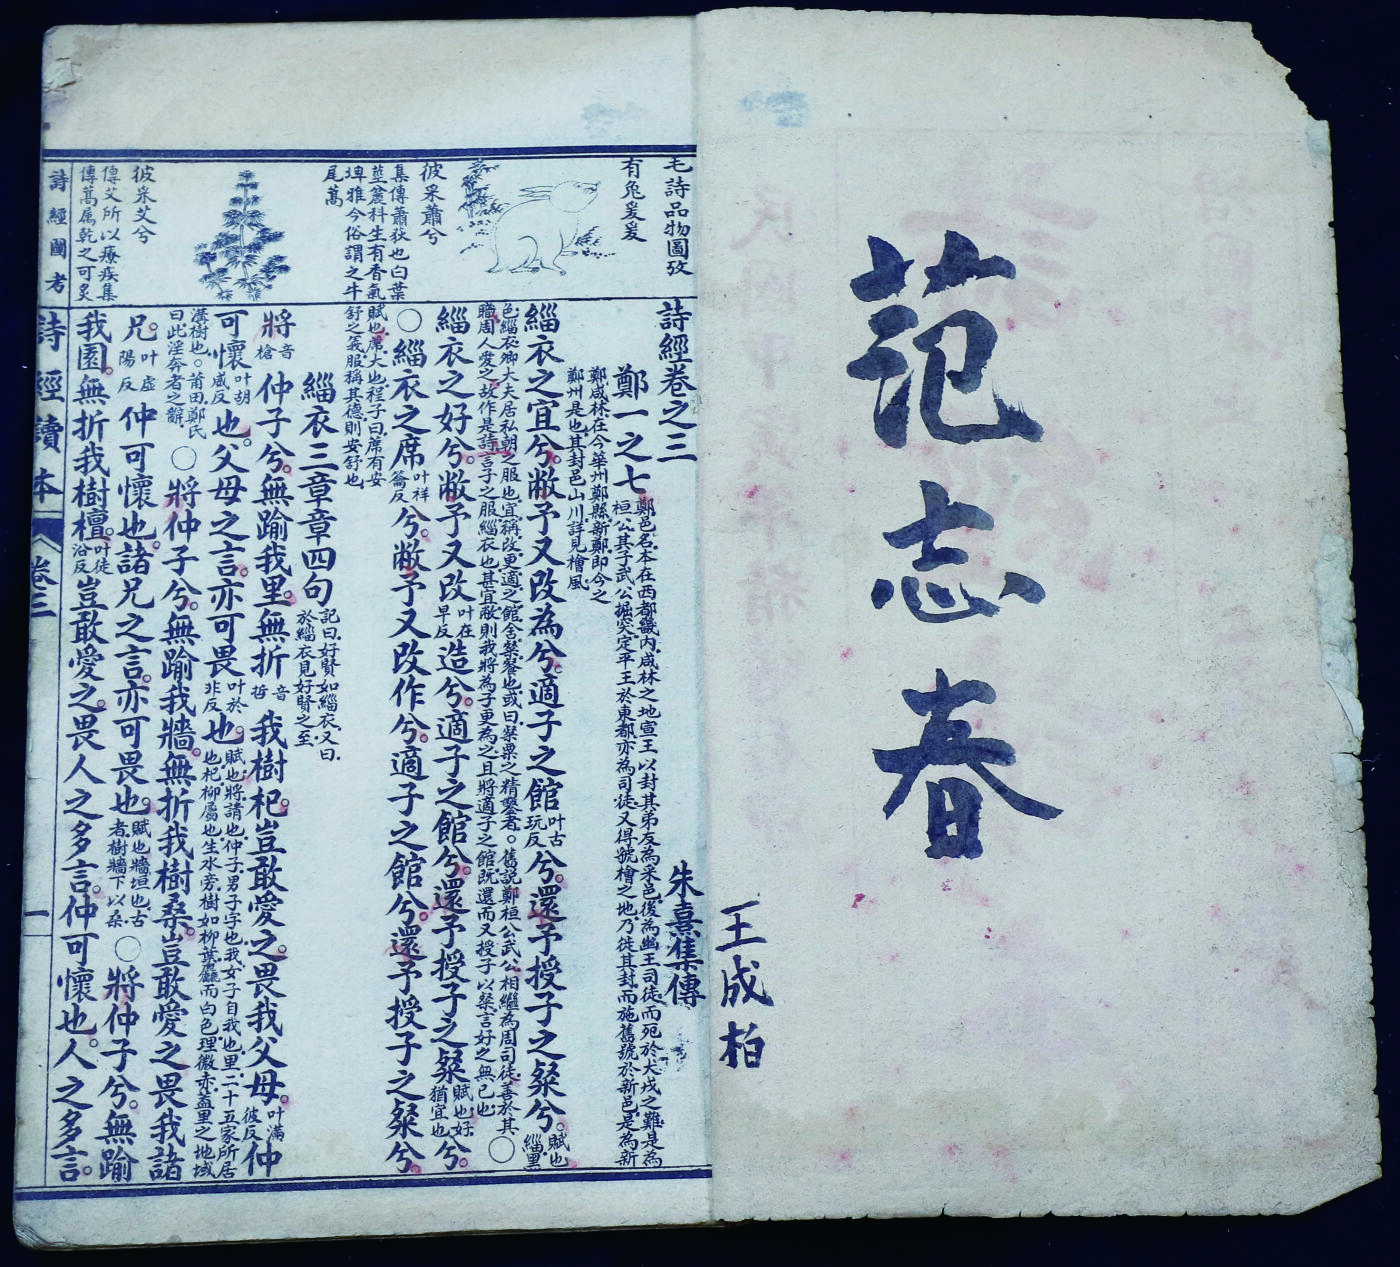 范志春
王成柏
毛詩品物圖攷
有兔爰爰
彼采蕭兮
集傳蕭荻也白葉
莖麄科生有香氣
埤雅今俗謂之牛
尾蒿
彼采艾兮
傳艾所以療疾集
傳蒿属乾之可炙
詩經圖考
詩經卷之三
朱熹集傳
鄭一之七
鄭邑名本在西都畿内咸林之地宣王以封其弟友為采邑後為幽王司徒而死於犬戎之難是為
桓公其子武公掘突定平王於東都亦為司徒又得虢檜之地乃徙其封而施舊號於新邑是為新
鄭咸林在今華州鄭縣新鄭即今之
鄭州是也其封邑山川詳見檜風
緇衣之宜兮敝予又改為兮適子之館叶古玩反兮還予授子之粲兮賦也緇黑
色緇衣卿大夫居私朝之服也宜稱改更適之館舍粲餐也或曰粲粟之精鑿者○舊説鄭桓公武公相繼為周司徒善於其
職周人愛之故作是詩言子之服緇衣也甚宜敝則我將為子更為之且將適子之館既還而又授子以粲言好之無已也
○
緇衣之好兮敝予又改叶在早反造兮適子之館兮還予授子之粲賦也好猶宜也兮
○緇衣之席叶祥籥反兮敝予又改作兮適子之館兮還予授子之粲兮
賦也席大也程子曰席有安
舒之義服稱其德則安舒也
緇衣三章章四句記曰好賢如緇衣又曰於緇衣見好賢之至
將音槍仲子兮無踰我里無折音哲我樹杞豈敢愛之畏我父母叶滿彼反仲
可懷叶胡威反也父母之言亦可畏叶於非反也賦也將請也仲子男子字也我女子自我也里二十五家所居也杞柳屬也生水旁樹如柳葉麄而白色理微赤蓋里之地域
溝樹也○莆田鄭氏曰此淫奔者之辭○將仲子兮無踰我牆無折我樹桑豈敢愛之畏我諸
兄叶虛陽反仲可懷也諸兄之言亦可畏也賦也牆垣也古者樹牆下以桑○將仲子兮無踰
我園無折我樹檀叶徒沿反豈敢愛之畏人之多言仲可懷也人之多言
詩經讀本
卷三
一